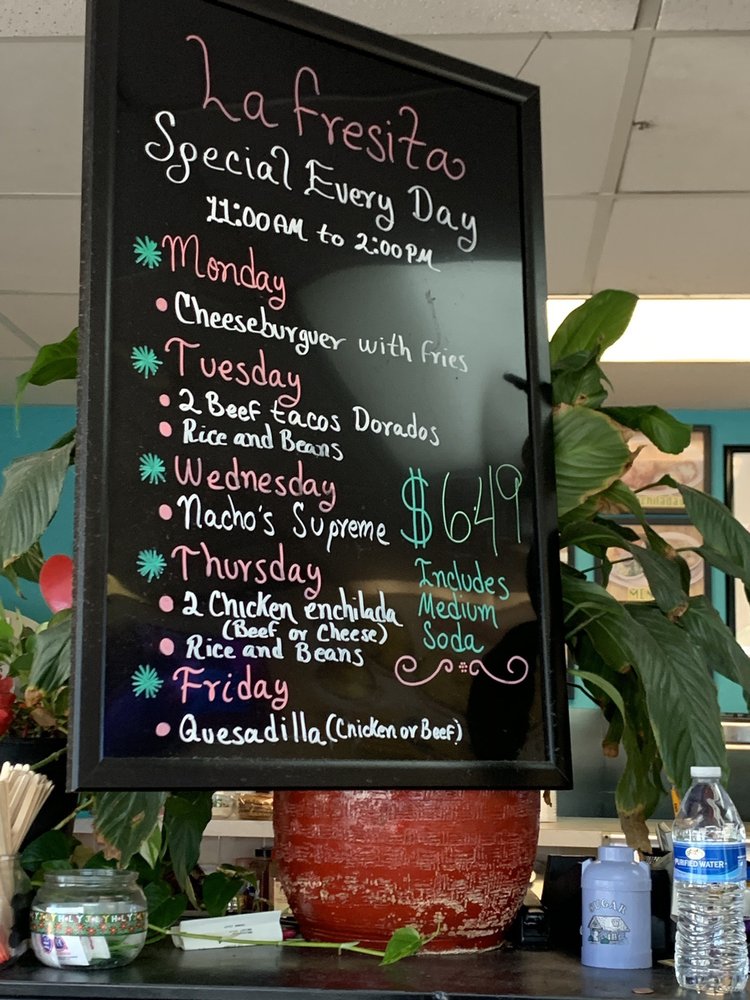 La Fresita
Special Every Day
11:00AM to 2:00PM
Monday
Cheeseburguer with fries
Tuesday
2 Beef tacos Dorados
Rice and Beans
Wednesday
Nacho's Supreme
$6.49
Includes
Medium
Soda
Thursday
2 Chicken enchilada
(Beef or Cheese)
Rice and Beans
Friday
Quesadilla (Chicken or Beef)
PURIFIED WATER
SUGAR
HOLY